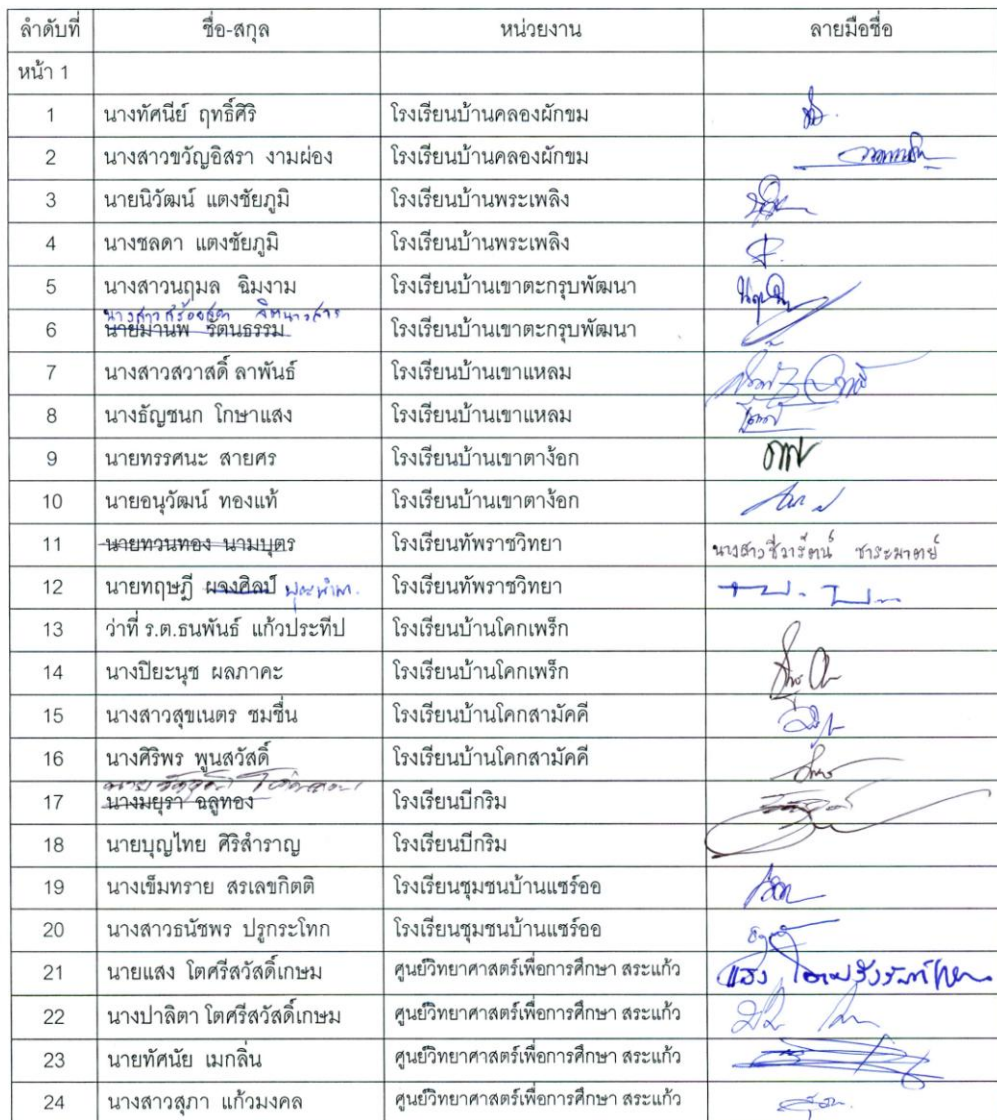 ลำดับที่ ชื่อ-สกุล หน่วยงาน ลายมือชื่อ
หน้า 1
1 นางทัศนีย์ ฤทธิ์ศิริ โรงเรียนบ้านคลองผักขม
2 นางสาวขวัญอิสรา งามผ่อง โรงเรียนบ้านคลองผักขม
3 นายนิวัฒน์ แตงชัยภูมิ โรงเรียนบ้านพระเพลิง
4 นางชลดา แตงชัยภูมิ โรงเรียนบ้านพระเพลิง
5 นางสาวนฤมล ฉิมงาม โรงเรียนบ้านเขาตะกรุบพัฒนา
นางสาว
6 นายมานพ รัตนธรรม โรงเรียนบ้านเขาตะกรุบพัฒนา
7 นางสาวสวาสดิ์ ลาพันธ์ โรงเรียนบ้านเขาแหลม
8 นางธัญชนก โกษาแสง โรงเรียนบ้านเขาแหลม
9 นายทรรศนะ สายศร โรงเรียนบ้านเขาตาง้อก
10 นายอนุวัฒน์ ทองแท้ โรงเรียนบ้านเขาตาง้อก
11 นายทวนทอง นามบุตร โรงเรียนทัพราชวิทยา นางสาวชีวารัตน์ ชาระมาตย์
12 นายทฤษฎี ผจงศิลป์ โรงเรียนทัพราชวิทยา
13 ว่าที่ ร.ต.ธนพันธ์ แก้วประทีป โรงเรียนบ้านโคกเพร็ก
14 นางปิยะนุช ผลภาคะ โรงเรียนบ้านโคกเพร็ก
15 นางสาวสุขเนตร ชมชื่น โรงเรียนบ้านโคกสามัคคี
16 นางศิริพร พูนสวัสดิ์ โรงเรียนบ้านโคกสามัคคี
17 นางมยุรา ฉลูทอง โรงเรียนบีกริม
18 นายบุญไทย ศิริสำราญ โรงเรียนบีกริม
19 นางเข็มทราย สรเลขกิตติ โรงเรียนชุมชนบ้านแซร์ออ
20 นางสาวธนัชพร ปรูกระโทก โรงเรียนชุมชนบ้านแซร์ออ
21 นายแสง โตศรีสวัสดิ์เกษม ศูนย์วิทยาศาสตร์เพื่อการศึกษา สระแก้ว แสง
22 นางปาลิตา โตศรีสวัสดิ์เกษม ศูนย์วิทยาศาสตร์เพื่อการศึกษา สระแก้ว
23 นายทัศนัย เมกลิ่น ศูนย์วิทยาศาสตร์เพื่อการศึกษา สระแก้ว
24 นางสาวสุภา แก้วมงคล ศูนย์วิทยาศาสตร์เพื่อการศึกษา สระแก้ว